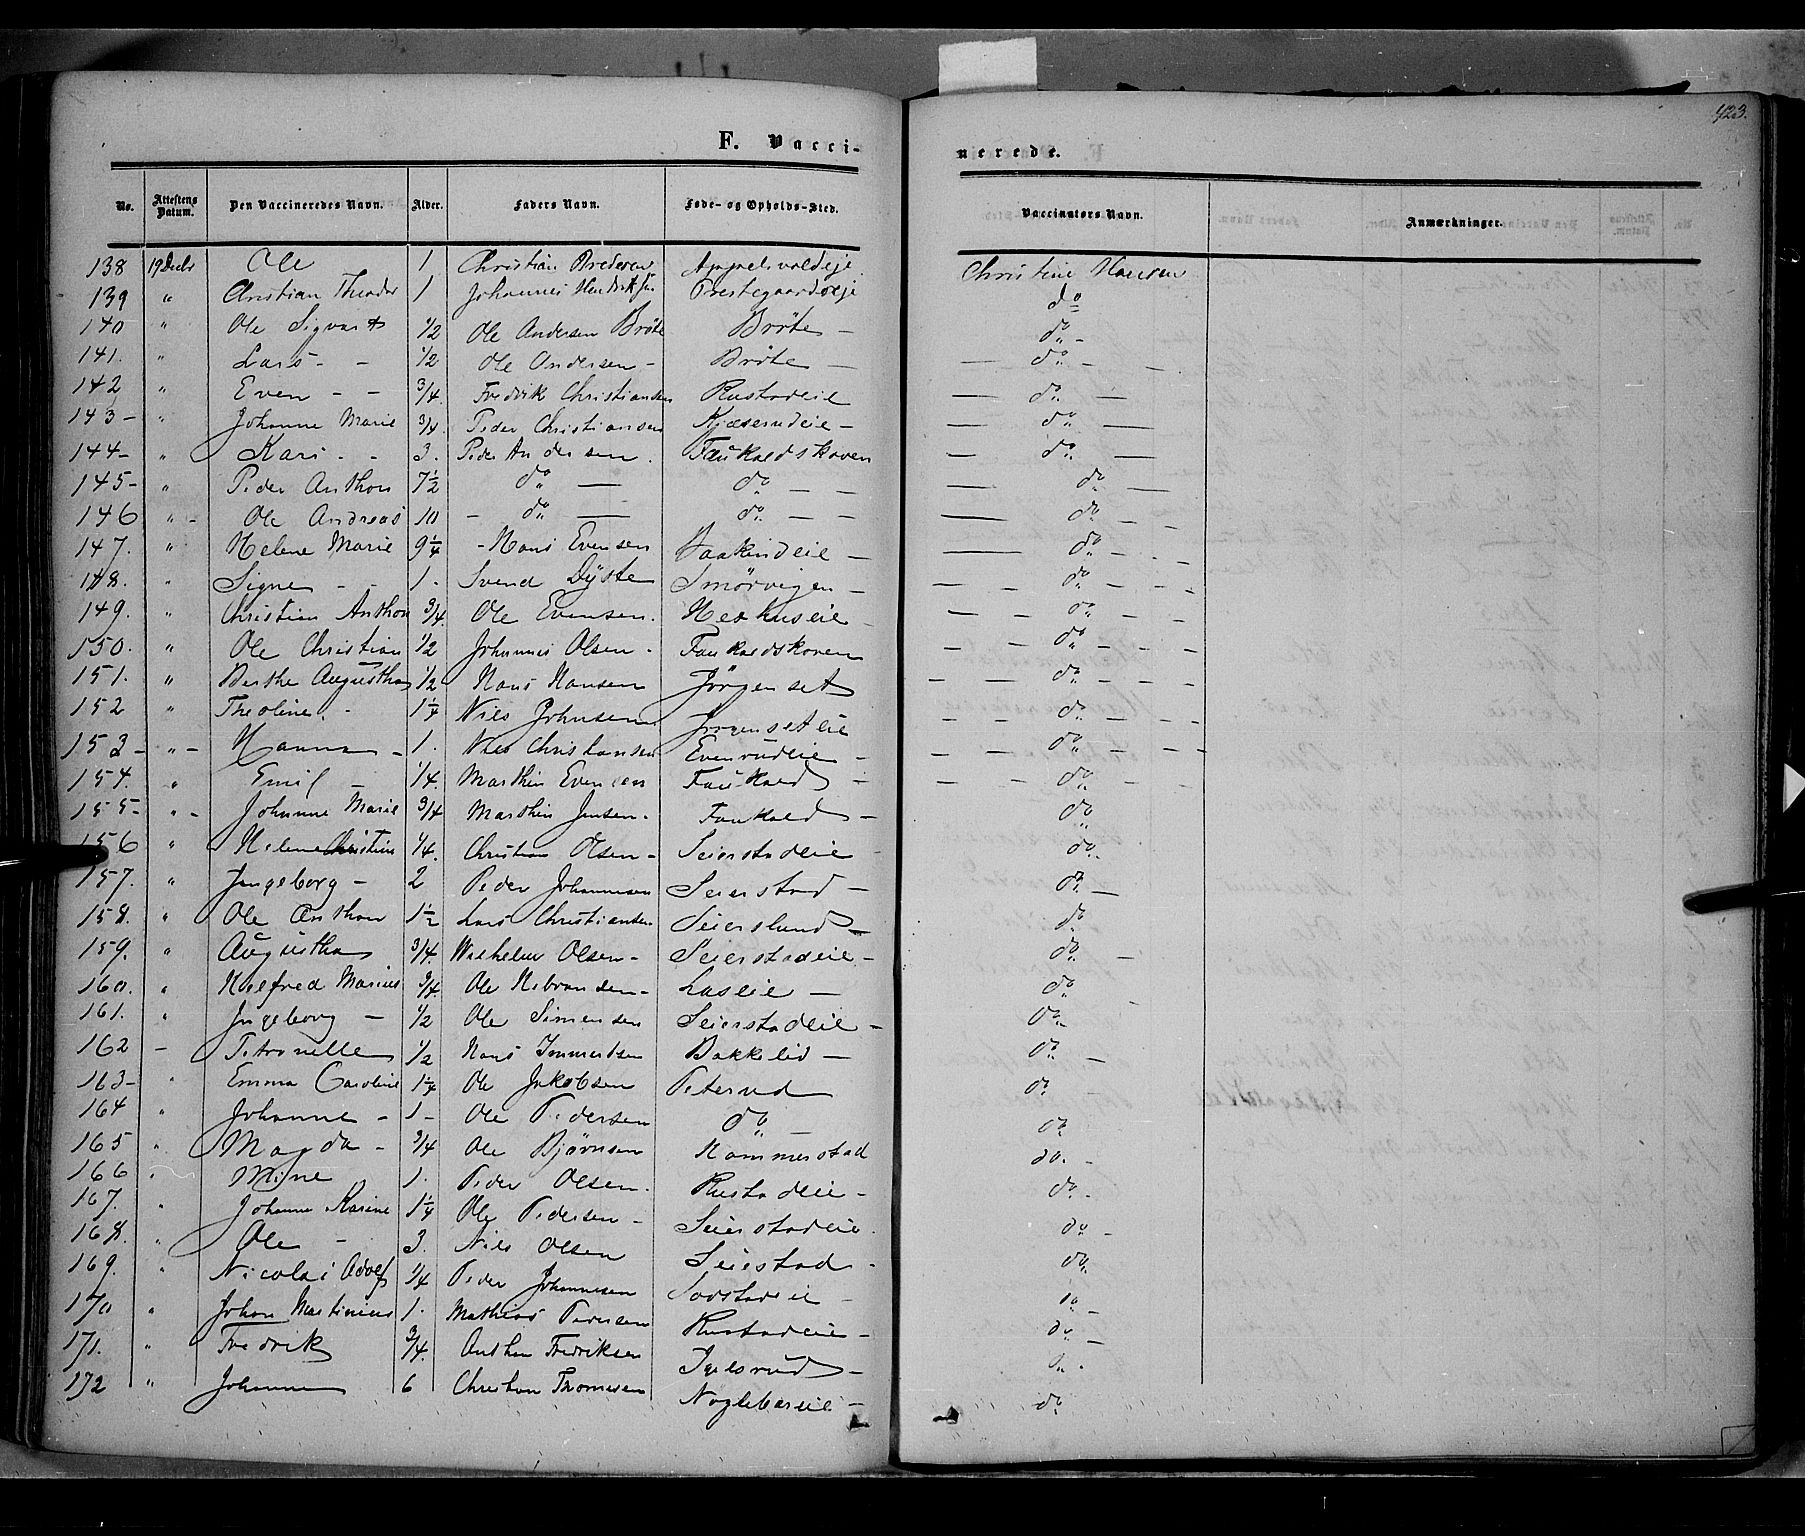 423.
F. Vacci-
nerede.
No. Attestens Datum. Den Vaccineredes Navn. Alder. Faders Navn. Føde- og Opholds-Sted. Vaccinators Navn. Anmærkninger.
138 19 Decbr Ole 1 Christian Christine Hansen
139 " Christian Theodor 1 Johannes Præstegaardseje do
140 " Ole Sigvart 1/2 Ole Andersen Brøte Brøte — do -
141. " Lars - - 1/2 Ole Andersen - Brøte — — do. - -
142 " Even - - 3/4. Fredrik Christiansen Rustadeie — do. —
143- " Johanne Marie 3/4. Peder Christiansen Kjæserudeie - — do. —
144- " Kari - - 3. Peder Andersen. Faukaldskoven — do. —
145- " Peder Anthon 7 1/2 do — do. — — — do —
146 " - Ole Andreas 10 - do. — do. — — — do. - -
147. " Helene Marie 9 1/4 - Hans Evensen — — do. - -
148. " Signe - - 1. Svend Dyste Smørvigen - — - do. - -
149. " Christian Anthon 3/4. Ole Evensen. - — - do. - -
150. " Ole Christian 1/2 Johannes Olsen - Faukaldskoven - - do. - - -
151. " Berthe Augustha 1/2 Hans Hansen Jørgenset - - - do. - - -
152 " Theoline. - 1 1/4 Nils Johnsen Jørgenseteie - - - do. - -
153 - " - Hanna - 1. Nils Christiansen Evenrudeie - - - do. - - -
154. " Emil - 1/4. Marthin Evensen Faukald - - - do. -
155- " - Johanne Marie 3/4 Marthin Jensen - Faukald - do
156 " Helene Christine 1/4. Christian Olsen - Seierstadeie - do..
157. " Ingeborg - 2 Peder Johannesen Seierstad - do. -
158. " Ole Anthon 1 1/2 Lars Christiansen Seierslund - do.
159. " Augustha 3/4. Wilhelm Olsen - Seierstadeie - do. -
160. " Halfred Marius 3/4. Ole Hebransen - Laseie - do
161. " Ingeborg - 1/2 Ole Simensen Seierstadeie - do..
162 - Petronelle 1/2 Hans Bakkelid - do. -
163- " Emma Caroline 1 1/4 Ole Jakobsen Peterud do.
164 " Johanne - 1 - Ole Pedersen do. — do.
165 " Magda - 3/4 Ole Bjørnsen Hammerstad do. -
166 " Mine 1. Peder Olsen. Rustadeie - do. -
167. " Johanne Karine 1 1/4 Ole Pedersen - Seierstadeie. do. -
168. " Ole - 3. Nils Olsen Seiestad - do.
169. " Nicolai Adolf 1/4 Peder Johannesen Sørstadeie - do -
170 " Johan Martinius 1. Mathias Pedersen Rustadeie - do. -
171. " Fredrik 3/4. Anthon Fredriksen Igelsrud - do. -
172 " Johanne 6 Christian Thomesen Nøglebæreie - do.